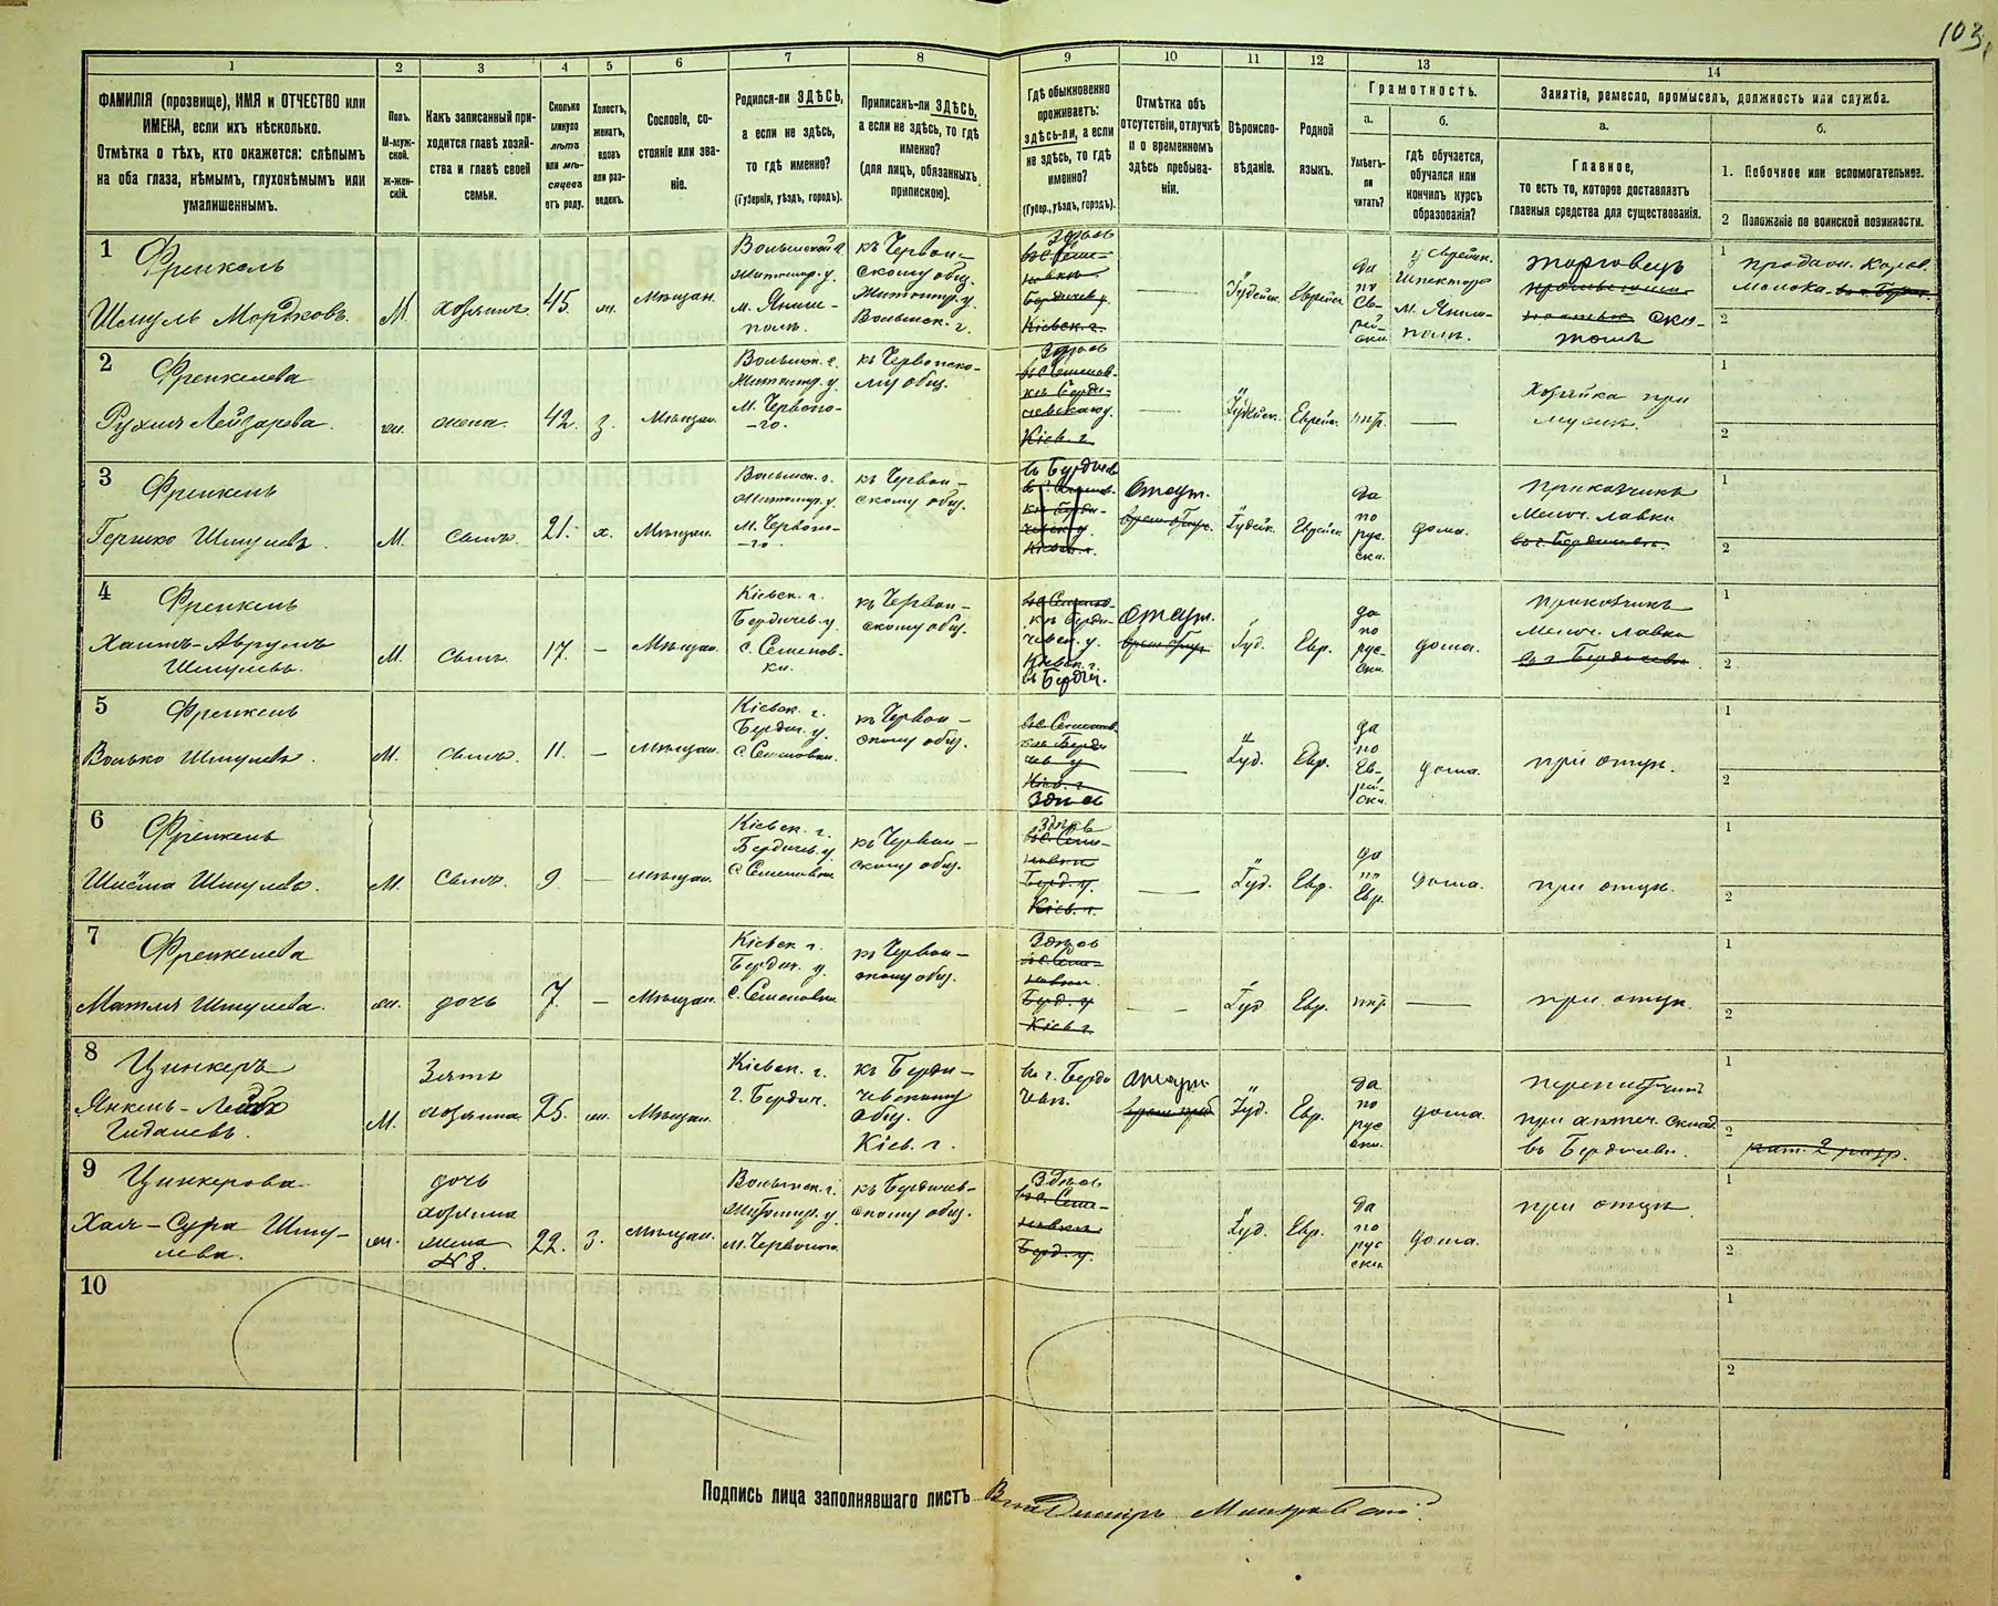 103
1 2 3 4 5 6 7 8 9 10 11 12 13 14
ФАМИЛІЯ (прозвище), ИМЯ и ОТЧЕСТВО или
ИМЕНА, если ихъ нѣсколько.
Отмѣтка о тѣхъ, кто окажется: слѣпымъ
на оба глаза, нѣмымъ, глухонѣмымъ или
умалишеннымъ.
Полъ.
М-муж-
ской.
ж-жен-
скій.
Какъ записанный при-
ходится главѣ хозяй-
ства и главѣ своей
семьи.
Сколько
минуло
лѣтъ
или мѣ-
сяцевъ
отъ роду.
Холостъ,
женатъ,
вдовъ
или раз-
веденъ.
Сословіе, со-
стояніе или зва-
ніе.
Родился-ли ЗДѢСЬ,
а если не здѣсь,
то гдѣ именно?
(Губернія, уѣздъ, городъ).
Приписанъ-ли ЗДѢСЬ,
а если не здѣсь, то гдѣ
именно?
(для лицъ, обязанныхъ
припискою).
Гдѣ обыкновенно
проживаетъ:
здѣсь-ли, а если
не здѣсь, то гдѣ
именно?
(Губер., уѣздъ, городъ).
Отмѣтка объ
отсутствіи, отлучкѣ
и о временномъ
здѣсь пребыва-
ніи.
Вѣроиспо-
вѣданіе.
Родной
языкъ.
Грамотность.
а.
Умѣетъ-
ли
читать?
б.
гдѣ обучается,
обучался или
кончилъ курсъ
образованія?
Занятіе, ремесло, промыселъ, должность или служба.
а.
Главное,
то есть то, которое доставляетъ
главныя средства для существованія.
б.
1. Побочное или вспомогательное.
2 Положеніе по воинской повинности.
1 Френкель
Шмуль Мордковъ. М. хозяинъ 45 ж. Мѣщан.
Волынской г.
Житомир. у.
м. Януш-
поль.
къ Червон-
скому общ.
Житомир. у.
Волынск. г.
Здѣсь
Бердичев. у.
Кіевск. г.
Іудейск. Еврейск.
да
по
Ев-
рей-
ски.
м. Януш-
поль.
торговецъ
ско-
томъ
1 продаж. Коров.
молока
2
2 Френкелева
Рухля Лейзарева. ж. жена. 42. з. Мѣщан.
Волынск. г.
Житомир. у.
м. Червоно-
-го.
къ Червонско-
му общ.
Здѣсь
Кіев. г.
— Іудейск. Еврейск. нѣт. —
Хозяйка при
мужѣ.
1
2
3 Френкель
Гершко Шмулевъ. М. сынъ. 21. х. Мѣщан.
Волынск. г.
Житомир. у.
м. Червоно-
-го
къ Червон-
скому общ.
въ Бердичев
Отсут.
Іудейск. Еврейск.
да
по
рус.
ски.
дома.
приказчикъ
Мелоч. лавки
въ г. Бердичевѣ.
1
2
4 Френкель
Хаимъ-Аврумъ
Шмулевъ. М. сынъ 17. — Мѣщан.
Кіевск. г.
Бердичев. у.
с. Семенов-
ки.
къ Червон-
скому общ.
Кіевск. г.
въ Бердич.
Отсут.
Іуд. Евр.
да
по
рус-
ски.
дома.
приказчикъ
Мелоч. лавки
въ г. Бердичевѣ.
1
2
5 Френкель
Волько Шмулевъ. М. сынъ. 11. — Мѣщан.
Кіевск. г.
Бердич. у.
с. Семеновки.
къ Червон-
скому общ.
Здѣсь
— Іуд. Евр.
да
по
Ев-
рей-
ски.
дома.
при отцѣ.
1
2
6 Френкель
Шлёма Шмулевъ. М. Сынъ. 9 — Мѣщан.
Кіевск. г.
Бердичев. у
с Семеновки
къ Червон-
скому общ.
Здѣсь
Берд. у.
Кіев. г.
— Іуд. Евр.
да
по
Евр.
дома.
при отцѣ.
1
2
7 Френкелева
Матля Шмулева. ж. дочь 7. — Мѣщан.
Кіевск г.
Бердич. у.
с. Семеновки
къ Червон-
скому общ.
Здѣсь
Берд. у
Кіев г.
— Іуд Евр. нѣт —
при отцѣ.
1
2
8 Цинкеръ
Янкель-Лейба
Гидалевъ. М.
Зять
хозяина 25. ж. Мѣщан.
Кіевск. г.
г. Бердич.
къ Берди-
чевскому
общ.
Кіев. г.
въ г. Берди
чев.
отсут.
Іуд. Евр.
да
по
рус
ски.
дома.
переписчикъ
при аптеч. склад.
въ Бердичевѣ.
1
2 рат. 2 разр.
9 Цинкерова
Хая-Сура Шму-
лева. ж.
дочь
хозяина
жена
№8. 22. з. Мѣщан.
Волынск. г.
Житомир. у.
м. Червоного
къ Бердичев-
скому общ.
Здѣсь
Берд. у.
— Іуд. Евр.
да
по
рус
ски
дома.
при отцѣ
1
2
10
1
2
Подпись лица заполнявшаго листъ Владиміръ